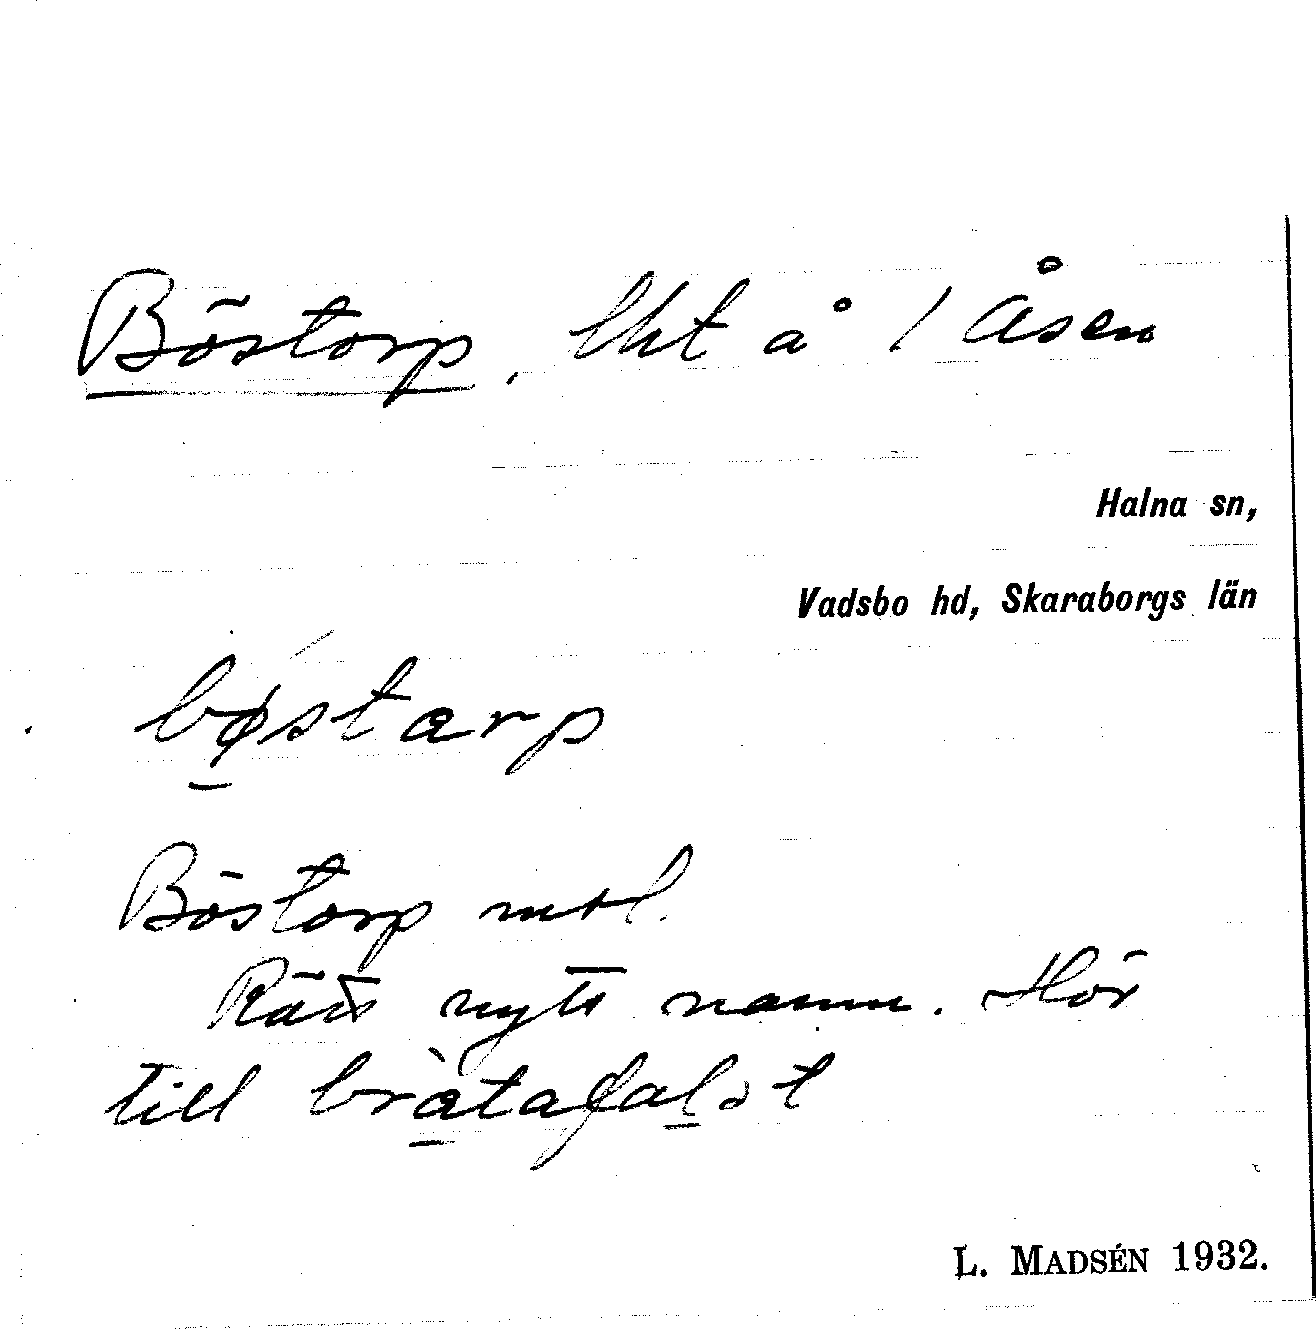 Böstorp, lht å 1 Åsen
Halna sn,
Vadsbo hd, Skaraborgs län
bøstarp
Böstorp mtl.
Rätt nytt namn. Hör
till bràtafalst
L. MADSÉN 1932.